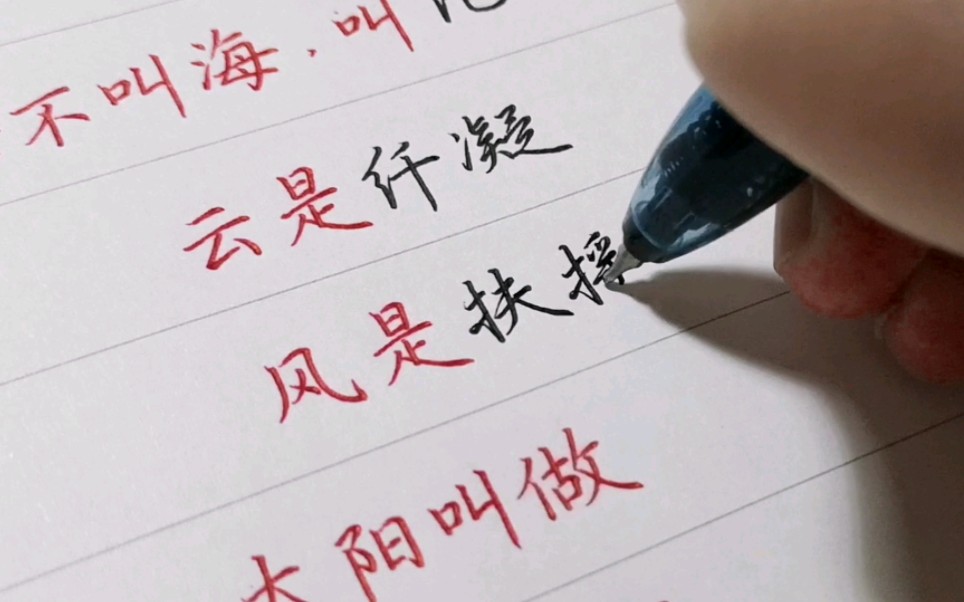 不叫海，叫
云是纤凝
风是扶摇
太阳叫做